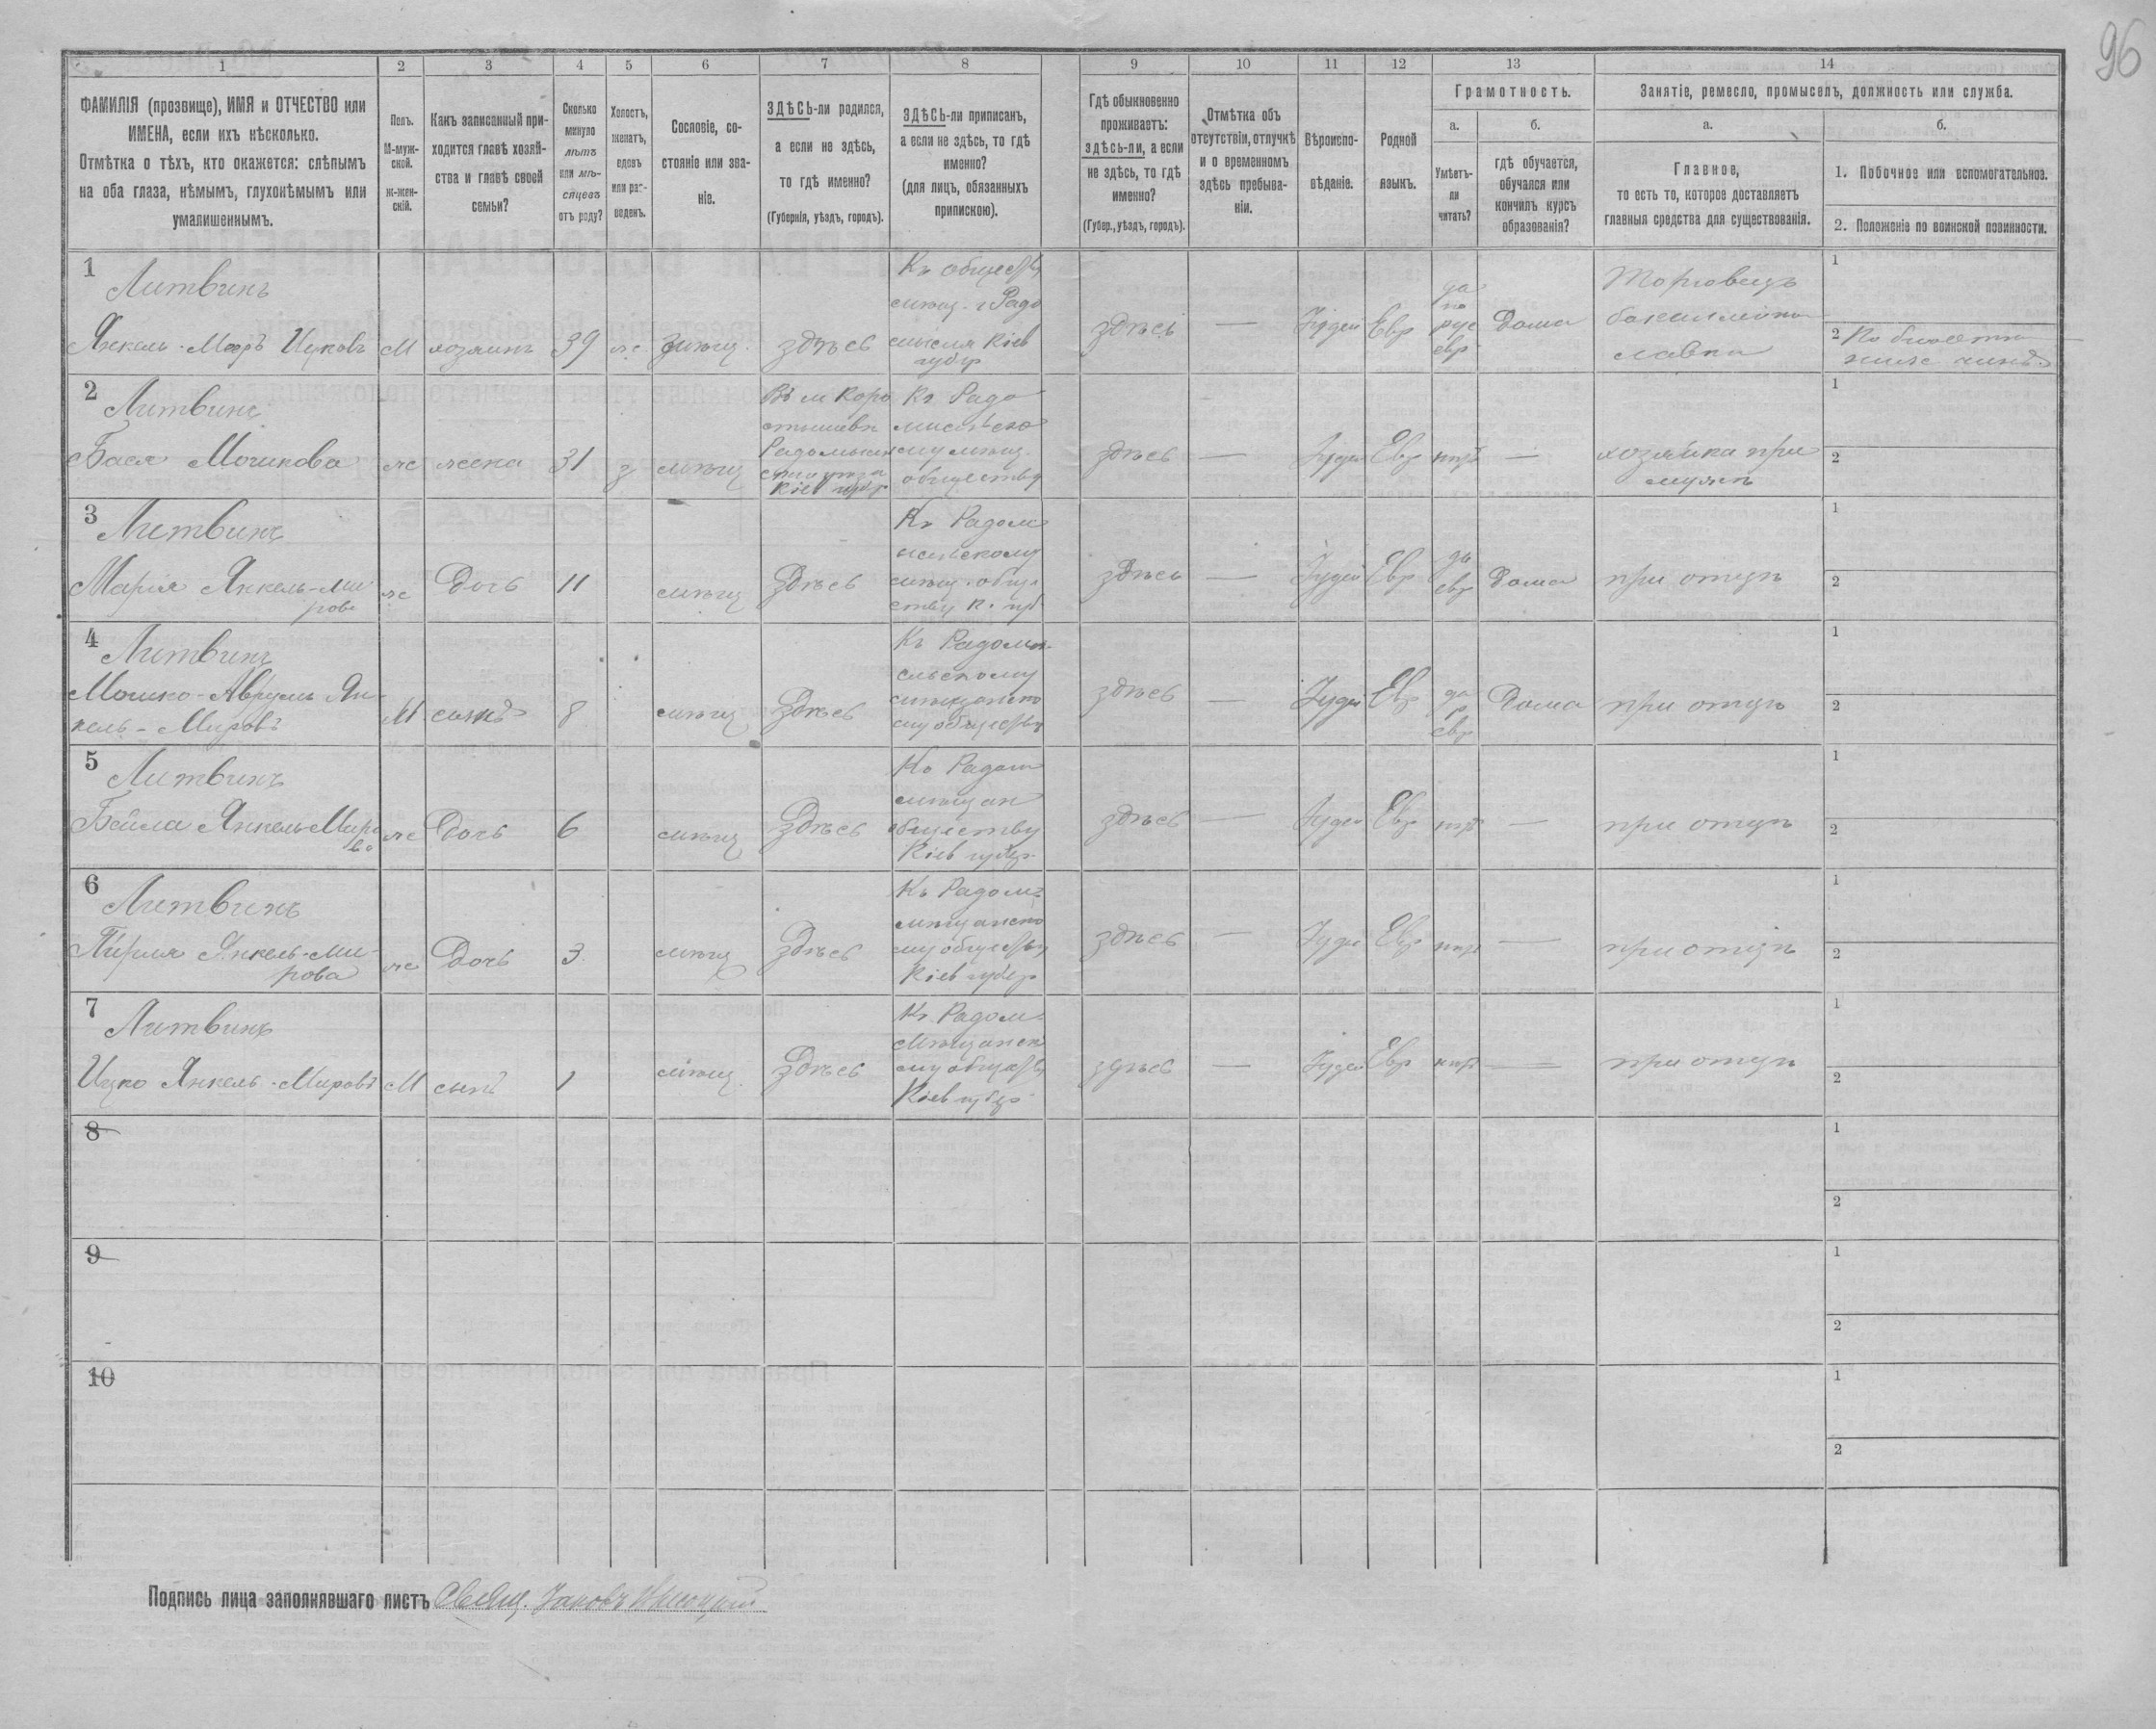 96
1 2 3 4 5 6 7 8 9 10 11 12 13 14
ФАМИЛІЯ (прозвище), ИМЯ и ОТЧЕСТВО или
ИМЕНА, если ихъ нѣсколько.
Отмѣтка о тѣхъ, кто окажется: слѣпымъ
на оба глаза, нѣмымъ, глухонѣмымъ или
умалишеннымъ.
Полъ.
М-муж-
ской.
Ж-жен-
скій.
Какъ записанный при-
ходится главѣ хозяй-
ства и главѣ своей
семьи?
Сколько
минуло
лѣтъ
или мѣ-
сяцевъ
отъ роду?
Холостъ,
женатъ,
вдовъ
или раз-
веденъ.
Сословіе, со-
стояніе или зва-
ніе.
ЗДѢСЬ-ли родился,
а если не здѣсь,
то гдѣ именно?
(Губернія, уѣздъ, городъ).
ЗДѢСЬ-ли приписанъ,
а если не здѣсь, то гдѣ
именно?
(для лицъ, обязанныхъ
припискою).
Гдѣ обыкновенно
проживаетъ:
здѣсь-ли, а если
не здѣсь, то гдѣ
именно?
(Губер., уѣздъ, городъ).
Отмѣтка объ
отсутствіи, отлучкѣ
и о временномъ
здѣсь пребыва-
ніи.
Вѣроиспо-
вѣданіе.
Родной
языкъ.
Грамотность.
а.
Умѣетъ-
ли
читать?
б.
гдѣ обучается,
обучался или
кончилъ курсъ
образованія?
Занятіе, ремесло, промыселъ, должность или служба.
а.
Главное,
то есть то, которое доставляетъ
главныя средства для существованія.
б.
1. Побочное или вспомогательное.
2. Положеніе по воинской повинности.
1
Литвинъ
Янкель-Меръ Ицковъ
М
хозяинъ
39
ж.
мѣщ.
здѣсь
Къ обществу
мѣщ. г. Радо
мысля Кіев
губер
здѣсь
—
Іудей
Евр
да
по
рус
евр
Дома
Торговецъ
бакалейная
лавка
1
2 По билету
2
Литвинъ
Бася Мошкова
ж
жена
31
з
мѣщ
Въ м Коро
стышевѣ
Радомысл
Кіев губер
Къ Радо
мысльско
му мѣщ.
обществу
здѣсь
—
Іудей
Евр
нѣтъ
—
хозяйка при
мужѣ
1
2
3
Литвинъ
Марія Янкель-Ми
рова
ж
Дочь
11
мѣщ
Здѣсь
Къ Радом
ысльскому
мѣщ. обще
ству К. губ
здѣсь
—
Іудей
Евр
да
евр
Дома
при отцѣ
1
2
4
Литвинъ
Мошко-Аврумъ Ян-
кель-Мировъ
М
сынъ
8
мѣщ
Здѣсь
Къ Радомы-
сльскому
мѣщанско
му обществу
здѣсь
—
Іудей
Евр
да
р
евр
Дома
при отцѣ
1
2
5
Литвинъ
Бейла Янкель-Миро
ва
ж
Дочь
6
мѣщ
Здѣсь
Къ Радом
мѣщан
обществу
Кіев губер.
здѣсь
—
Іудей
Евр
нѣтъ
—
при отцѣ
1
2
6
Литвинъ
Янкель-Ми-
рова
ж
Дочь
3
мѣщ
Здѣсь
Къ Радом.
мѣщанско
му обществу
Кіев губер
здѣсь
—
Іудей
Евр
нѣтъ
—
при отцѣ
1
2
7
Литвинъ
Ицко Янкель-Мировъ
М
сынъ
1
мѣщ.
Здѣсь
Къ Радом.
Мѣщанск
му обществу
Кіев губер
здѣсь
—
Іудей
Евр
нѣтъ
—
при отцѣ
1
2
8
1
2
9
1
2
10
1
2
Подпись лица заполнявшаго листъ Свящ. Іаковъ